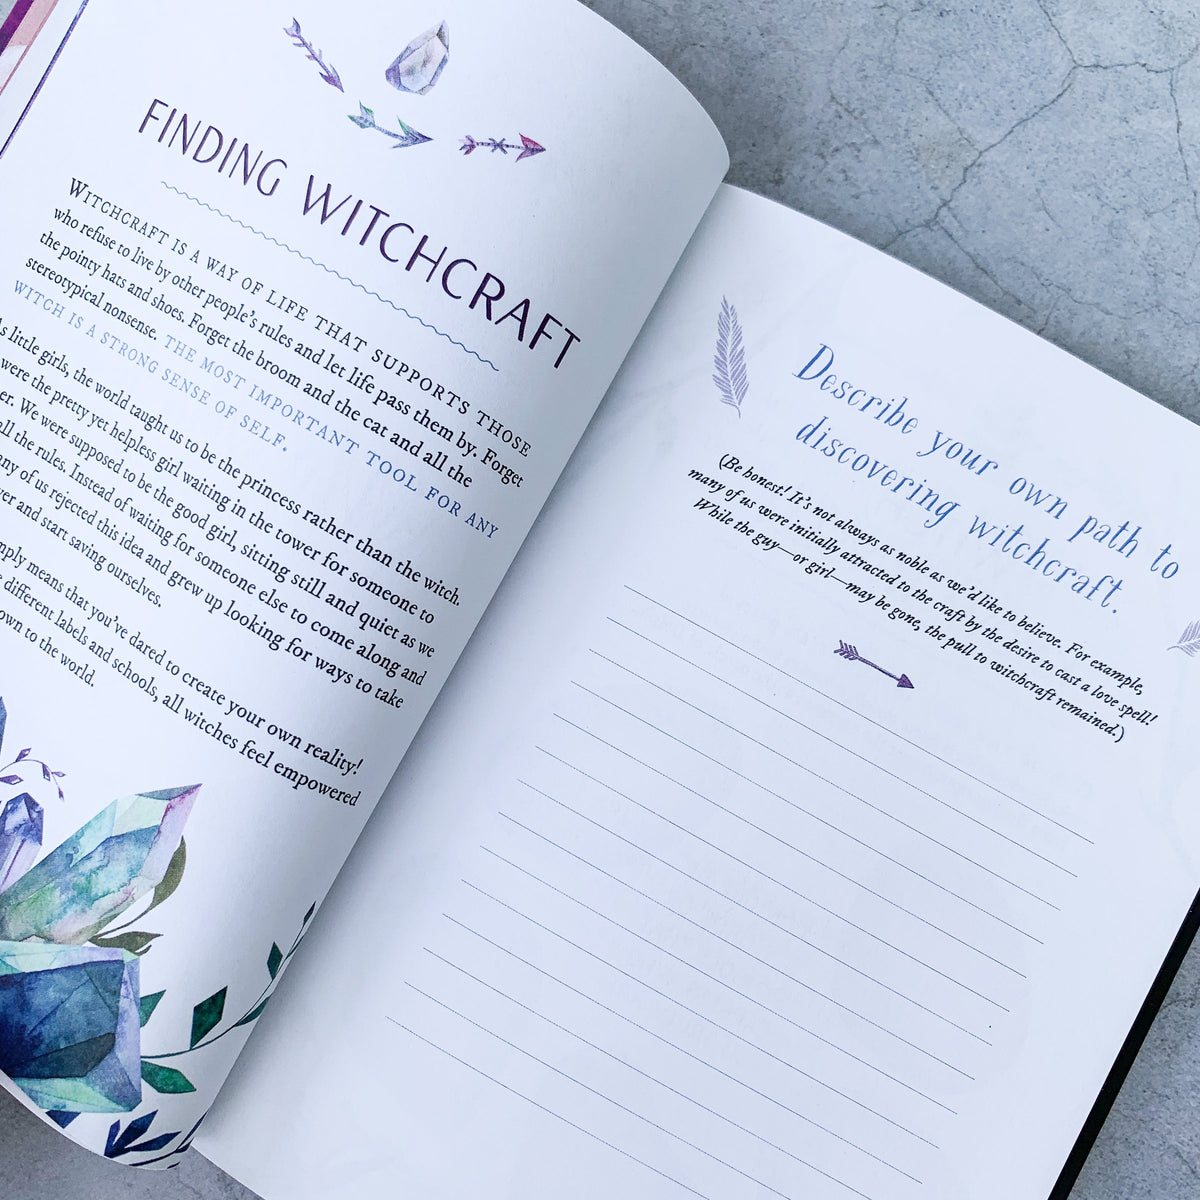 FINDING WITCHCRAFT
WITCHCRAFT IS A WAY OF LIFE THAT SUPPORTS THOSE
who refuse to live by other people's rules and let life pass them by. Forget
the pointy hats and shoes. Forget the broom and the cat and all the
stereotypical nonsense. THE MOST IMPORTANT TOOL FOR ANY
WITCH IS A STRONG SENSE OF SELF.
As little girls, the world taught us to be the princess rather than the witch.
were the pretty yet helpless girl waiting in the tower for someone to
We were supposed to be the good girl, sitting still and quiet as we
all the rules. Instead of waiting for someone else to come along and
of us rejected this idea and grew up looking for ways to take
and start saving ourselves.
means that you've dared to create your own reality!
different labels and schools, all witches feel empowered
own to the world.
Describe your own path to
discovering witchcraft.
(Be honest! It's not always as noble as we'd like to believe. For example,
many of us were initially attracted to the craft by the desire to cast a love spell!
While the guy—or girl—may be gone, the pull to witchcraft remained.)